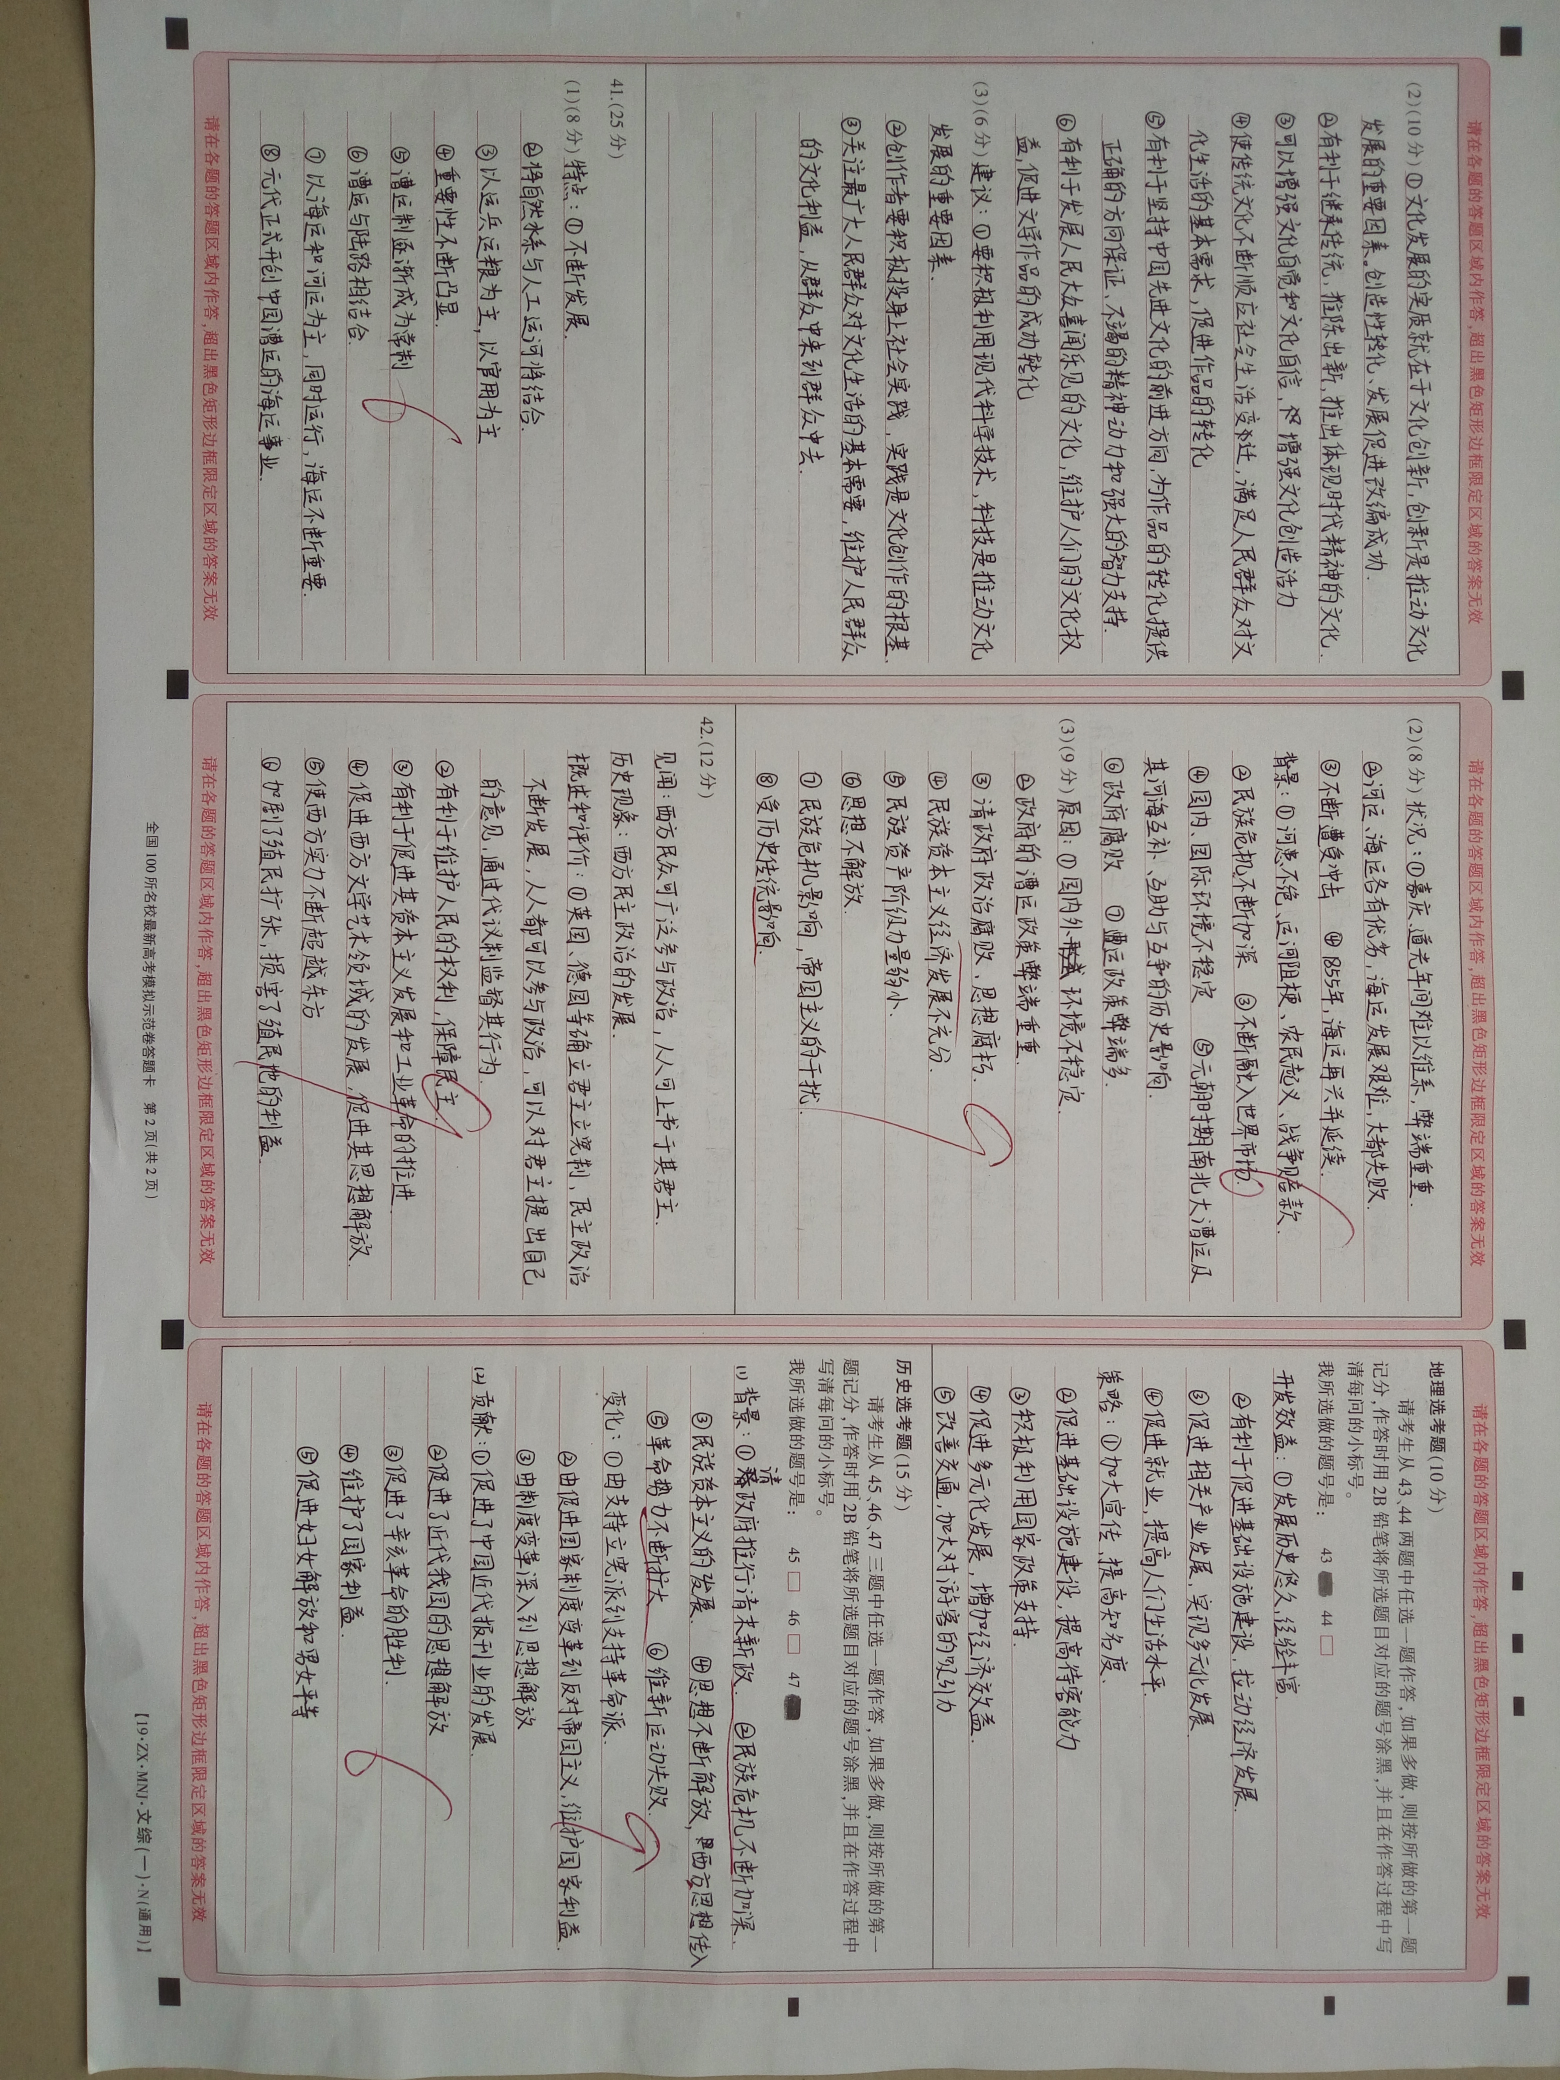 请在各题的答题区域内作答,超出黑色矩形边框限定区域的答案无效
(2)(10分)①文化发展的实质就在于文化创新,创新是推动文化
发展的重要因素。创造性转化、发展促进改编成功.
②有利于继承传统,推陈出新,推出体现时代精神的文化.
③可以增强文化自觉和文化自信,增强文化创造活力
④使传统文化不断顺应社会生活变迁,满足人民群众对文
化生活的基本需求,促进作品的转化
⑤有利于坚持中国先进文化的前进方向,为作品的转化提供
正确的方向保证、不竭的精神动力和强大的智力支持.
⑥有利于发展人民大众喜闻乐见的文化,维护人们的文化权
益,促进文学作品的成功转化
(3)(6分)建议:①要积极利用现代科学技术,科技是推动文化
发展的重要因素.
②创作者要积极投身上社会实践,实践是文化创作的根基.
③关注最广大人民群众对文化生活的基本需要,维护人民群众
的文化利益,从群众中来到群众中去.
41.(25分)
(1)(8分)特点:①不断发展.
②将自然水系与人工运河将结合.
③以运兵运粮为主,以官用为主
④重要性不断凸显.
⑤漕运制逐渐成为常制
⑥漕运与陆路相结合.
⑦以海运和河运为主,同时运行,海运不断重要.
⑧元代正式开创中国漕运的海运事业.
请在各题的答题区域内作答,超出黑色矩形边框限定区域的答案无效
请在各题的答题区域内作答,超出黑色矩形边框限定区域的答案无效
(2)(8分)状况:①嘉庆、道光年间难以维系,弊端重重.
②河运、海运各有优劣,海运发展艰难,大都失败.
③不断遭受冲击 ④1855年,海运再兴并延续.
背景:①河患不绝、运河阻梗、农民起义、战争赔款.
②民族危机不断加深 ③不断融入世界市场.
④国内、国际环境不稳定 ⑤元朝时期南北大漕运及
其河海互补、互助与互争的历史影响.
⑥政府腐败 ⑦漕运政策弊端多.
(3)(9分)原因:①国内外环境不稳定.
②政府的漕运政策弊端重重.
③清政府政治腐败,思想腐朽.
④民族资本主义经济发展不充分.
⑤民族资产阶级力量弱小.
⑥思想不解放.
⑦民族危机影响,帝国主义的干扰.
⑧受历史传统影响.
42.(12分)
见闻:西方民众可广泛参与政治,人人可上书于其君主.
历史现象:西方民主政治的发展.
概述和评价:①英国、德国等确立君主立宪制,民主政治
不断发展,人人都可以参与政治,可以对君主提出自己
的意见,通过代议制监督其行为.
②有利于维护人民的权利,保障民主
③有利于促进其资本主义发展和工业革命的推进.
④促进西方文学艺术领域的发展,促进其思想解放.
⑤使西方实力不断超越东方
⑥加剧了殖民扩张,损害了殖民地的利益.
请在各题的答题区域内作答,超出黑色矩形边框限定区域的答案无效
全国100所名校最新高考模拟示范卷答题卡 第2页(共2页)
请在各题的答题区域内作答,超出黑色矩形边框限定区域的答案无效
地理选考题(10分)
请考生从43、44两题中任选一题作答,如果多做,则按所做的第一题
记分,作答时用2B铅笔将所选题目对应的题号涂黑,并且在作答过程中写
清每问的小标号。
我所选做的题号是: 43 44
开发效益:①发展历史悠久,经验丰富
②有利于促进基础设施建设,拉动经济发展.
③促进相关产业发展,实现多元化发展.
④促进就业,提高人们生活水平.
策略:①加大宣传,提高知名度.
②促进基础设施建设,提高待客能力
③积极利用国家政策支持.
④促进多元化发展,增加经济效益.
⑤改善交通,加大对游客的吸引力
历史选考题(15分)
请考生从45、46、47三题中任选一题作答,如果多做,则按所做的第一
题记分,作答时用2B铅笔将所选题目对应的题号涂黑,并且在作答过程中
写清每问的小标号。
我所选做的题号是: 45 46 47
(1)背景:①清政府推行清末新政. ②民族危机不断加深.
③民族资本主义的发展. ④思想不断解放,西方思想传入
⑤革命势力不断扩大 ⑥维新运动失败.
变化:①由支持立宪派到支持革命派.
②由促进国家制度变革到反对帝国主义,维护国家利益.
③由制度变革深入到思想解放
(2)贡献:①促进了中国近代报刊业的发展.
②促进了近代我国的思想解放
③促进了辛亥革命的胜利.
④维护了国家利益.
⑤促进妇女解放和男女平等
请在各题的答题区域内作答,超出黑色矩形边框限定区域的答案无效
【19·ZX·MNJ·文综(一)·N(通用)】